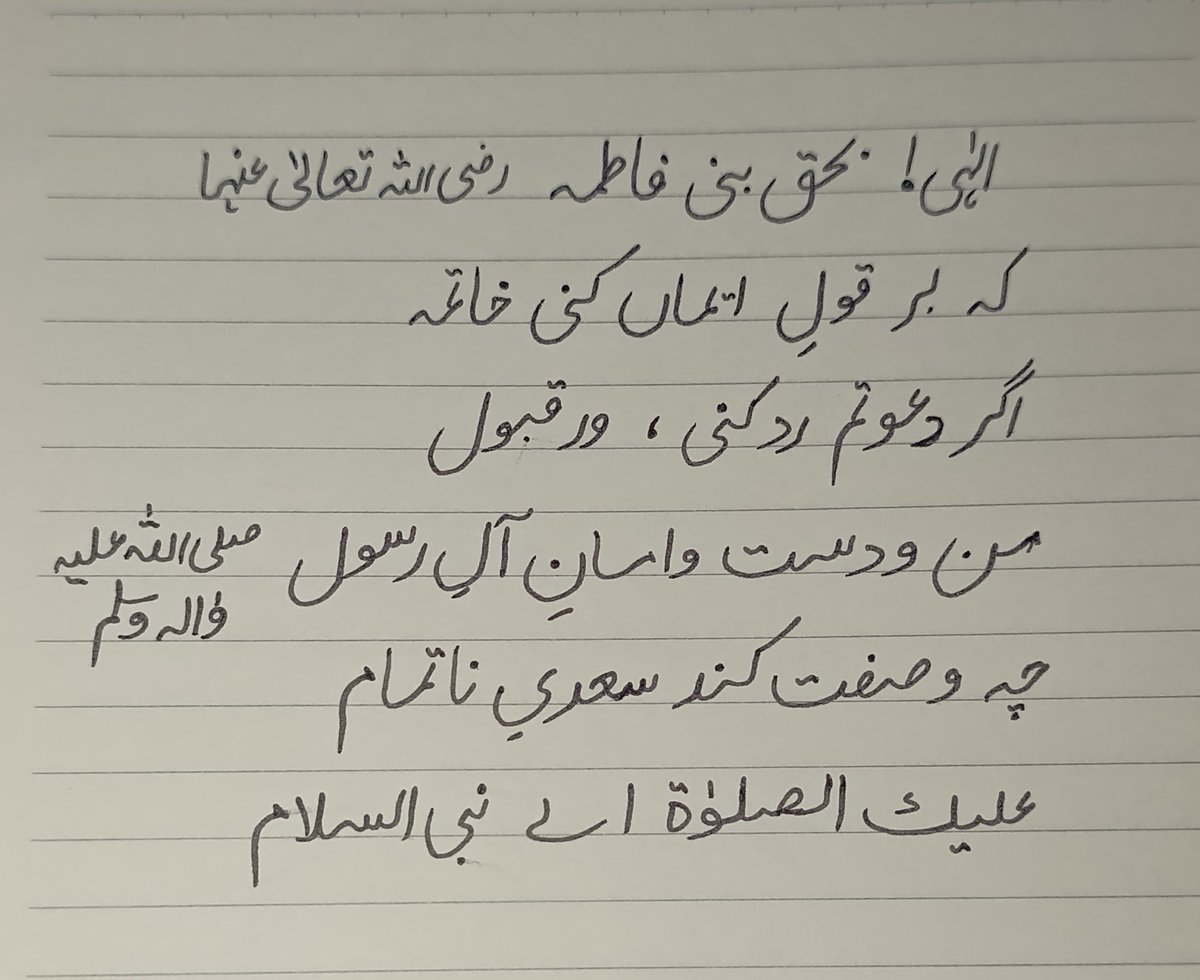 الٰہی! بحق بنی فاطمہ رضی اللہ تعالیٰ عنہا
کہ بر قولِ ایماں کنی خاتمہ
اگر دعوتم رد کنی، ور قبول
من و دست و امانِ آلِ رسول صلی اللہ علیہ
واٰلہ وسلم
چہ وصفت کند سعدیِ ناتمام
علیك الصلوٰة اے نبی السلام